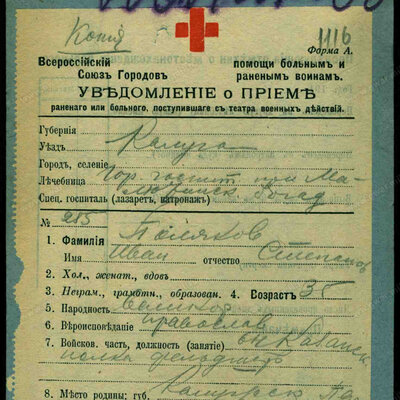 Копія
1116
Форма А.
Всероссійскій помощи больнымъ и
Союзъ Городовъ раненымъ воинамъ.
УВѢДОМЛЕНІЕ о ПРІЕМѢ
раненаго или больного, поступившаго съ театра военныхъ дѣйствій.
Губернія
Уѣздъ Калуга
Городъ, селеніе
Лѣчебница Гор. госпит. при Ма-
Спец. госпиталь (лазаретъ, патронажъ)
№ 285
1. Фамилія Поляков
Имя Иван отчество Степанов
2. Хол., женат., вдовъ
3. Неграм., грамотн., образован. 4. Возрастъ 35
5. Народность великор
6. Вѣроисповѣданіе православ
7. Войсков. часть, должность (занятіе)
полка фельдшер
8. Мѣсто родины; губ. Калужск